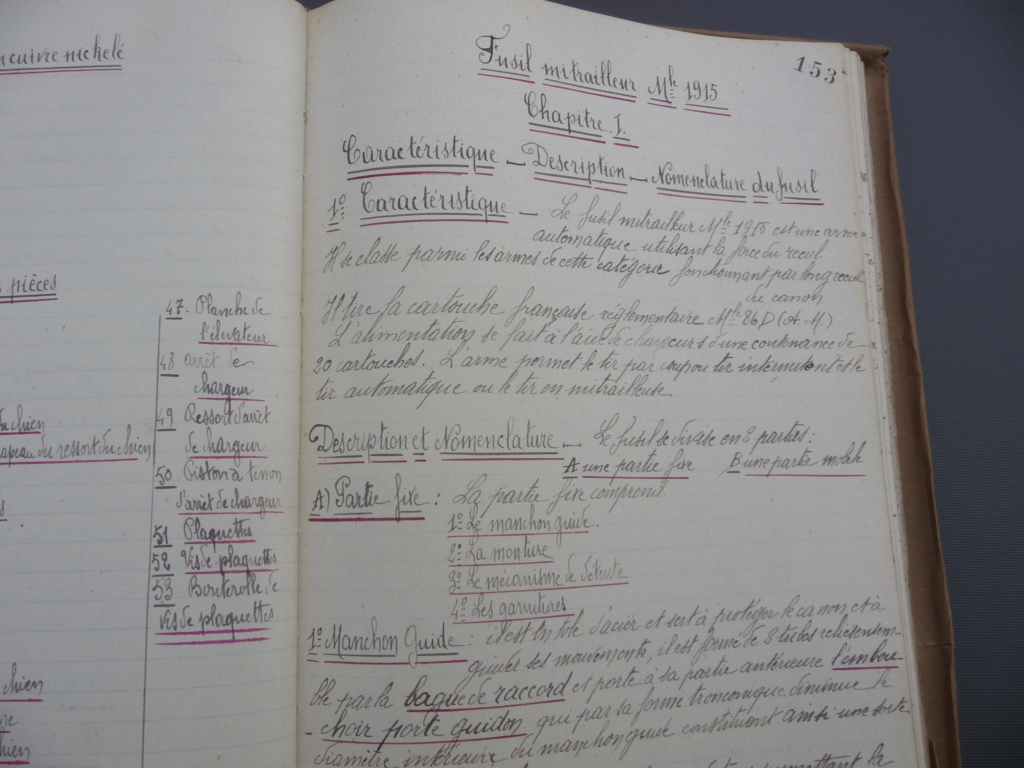 cuivre nickelé
pièces
chien
du ressort du chien
chien
chien
47. Planche de
l'élévateur
48 arrêt de
chargeur
49 Ressort d'arrêt
de chargeur
50 Piston à tenon
d'arrêt de chargeur
51 Plaquettes
52 Vis de plaquettes
53 Bouterolle de
Vis de plaquettes
153
Fusil mitrailleur Mle 1915
Chapitre I.
Caractéristique _ Description _ Nomenclature du fusil
1º Caractéristique _ Le fusil mitrailleur Mle 1915 est une arme
automatique utilisant la force du recul
Il se classe parmi les armes de cette catégorie fonctionnant par long recul
de canon
Il tire la cartouche française réglementaire Mle 86 D (A.M.)
L'alimentation se fait à l'aide de chargeurs d'une contenance de
20 cartouches. L'arme permet le tir par coup ou tir intermittent et le
tir automatique ou le tir en mitrailleuse
Description et Nomenclature _ Le fusil se divise en 2 parties :
A une partie fixe B une partie mobile
A) Partie fixe : La partie fixe comprend
1º Le manchon guide.
2º La monture
3º Le mécanisme de détente
4º Les garnitures
1º Manchon Guide : il est en tôle d'acier et sert à protéger le canon et à
guider ses mouvements, il est formé de 2 tubes reliés ensem-
ble par la bague de raccord et porte à sa partie antérieure l'embou-
-choir porte guidon qui par sa forme tronconique diminue le
diamètre intérieure du manchon guide constituant ainsi une sorte